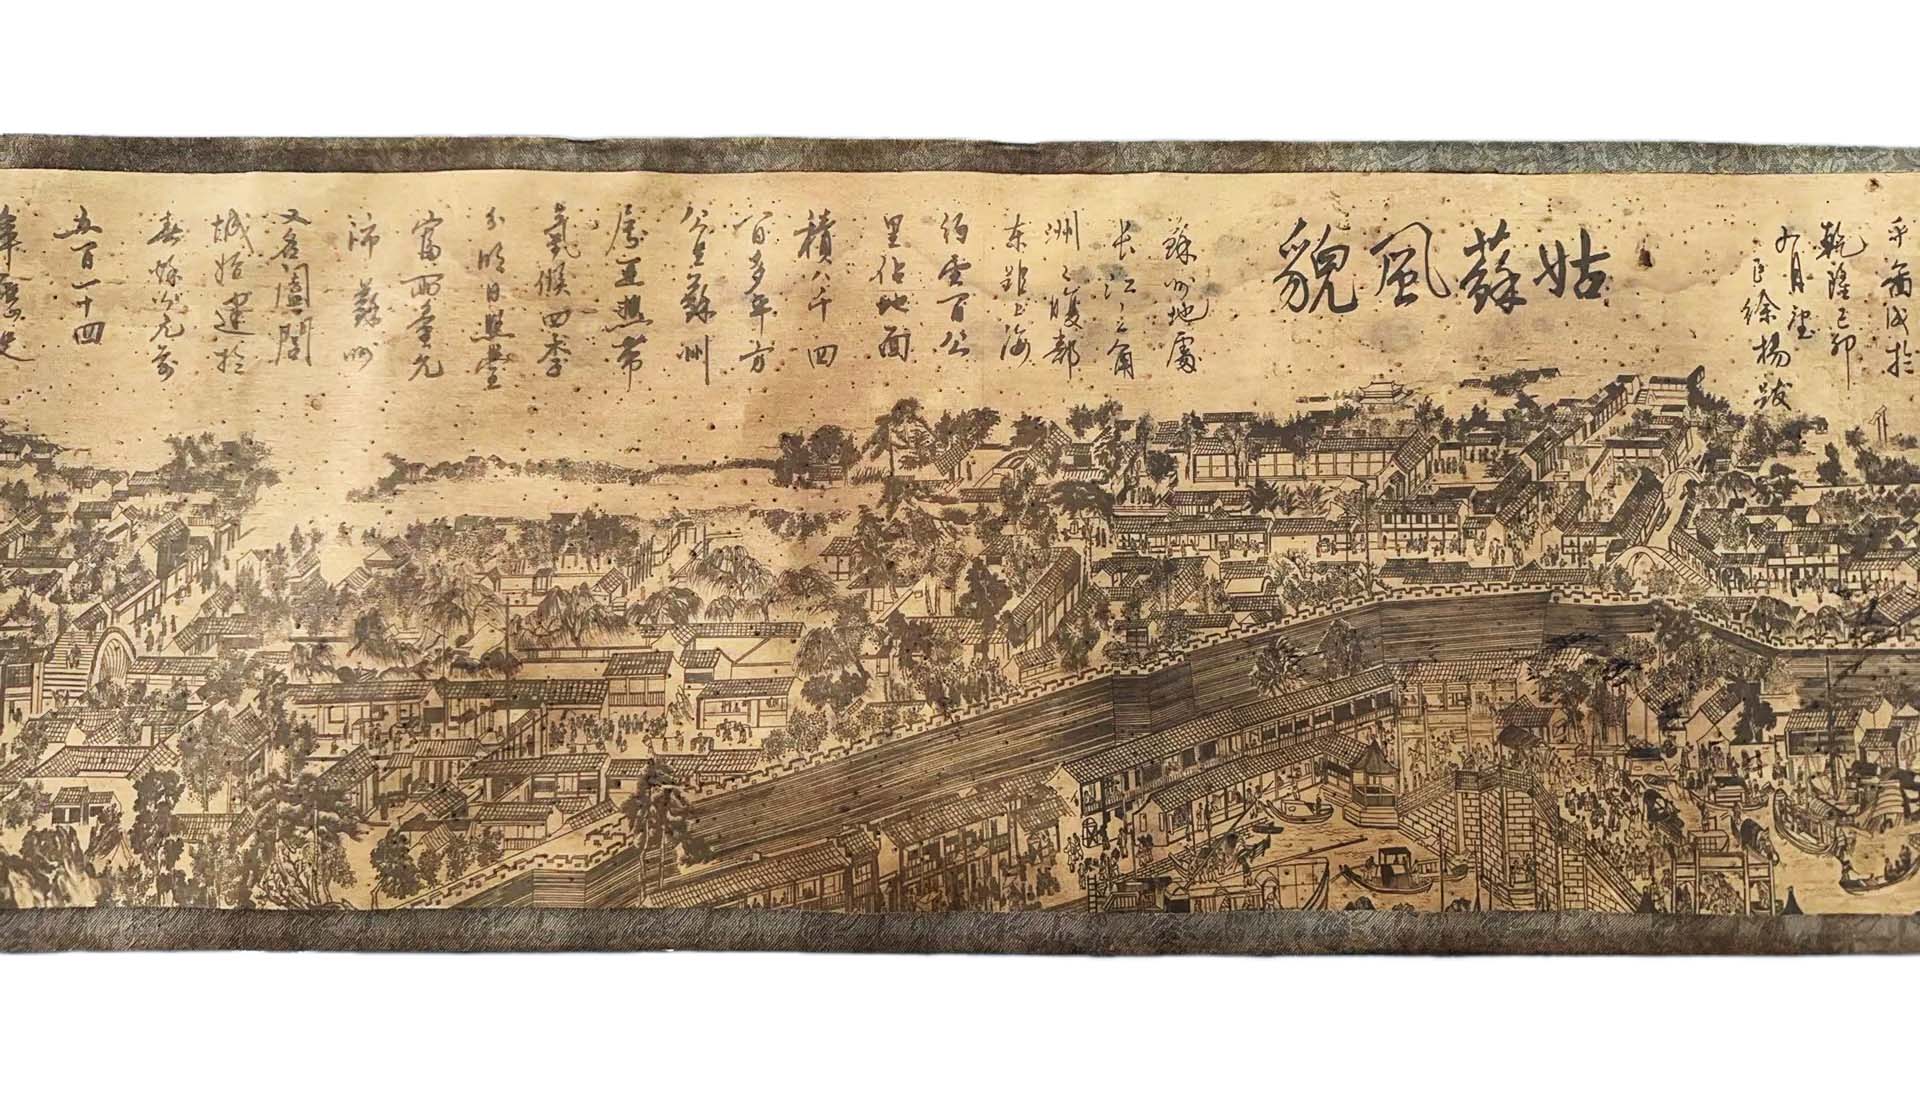 乎圖成於
乾隆己卯
九月望
臣徐揚跋
姑蘇風貌
蘇州地處
长江三角
洲之腹部
东距上海
约壹百公
里佔地面
積八千四
百多平方
公里蘇州
属亚热带
氣候四季
分明日照豐
富雨量充
沛蘇州
又名闔閭
城始建於
春秋公元前
五百一十四
年歷史